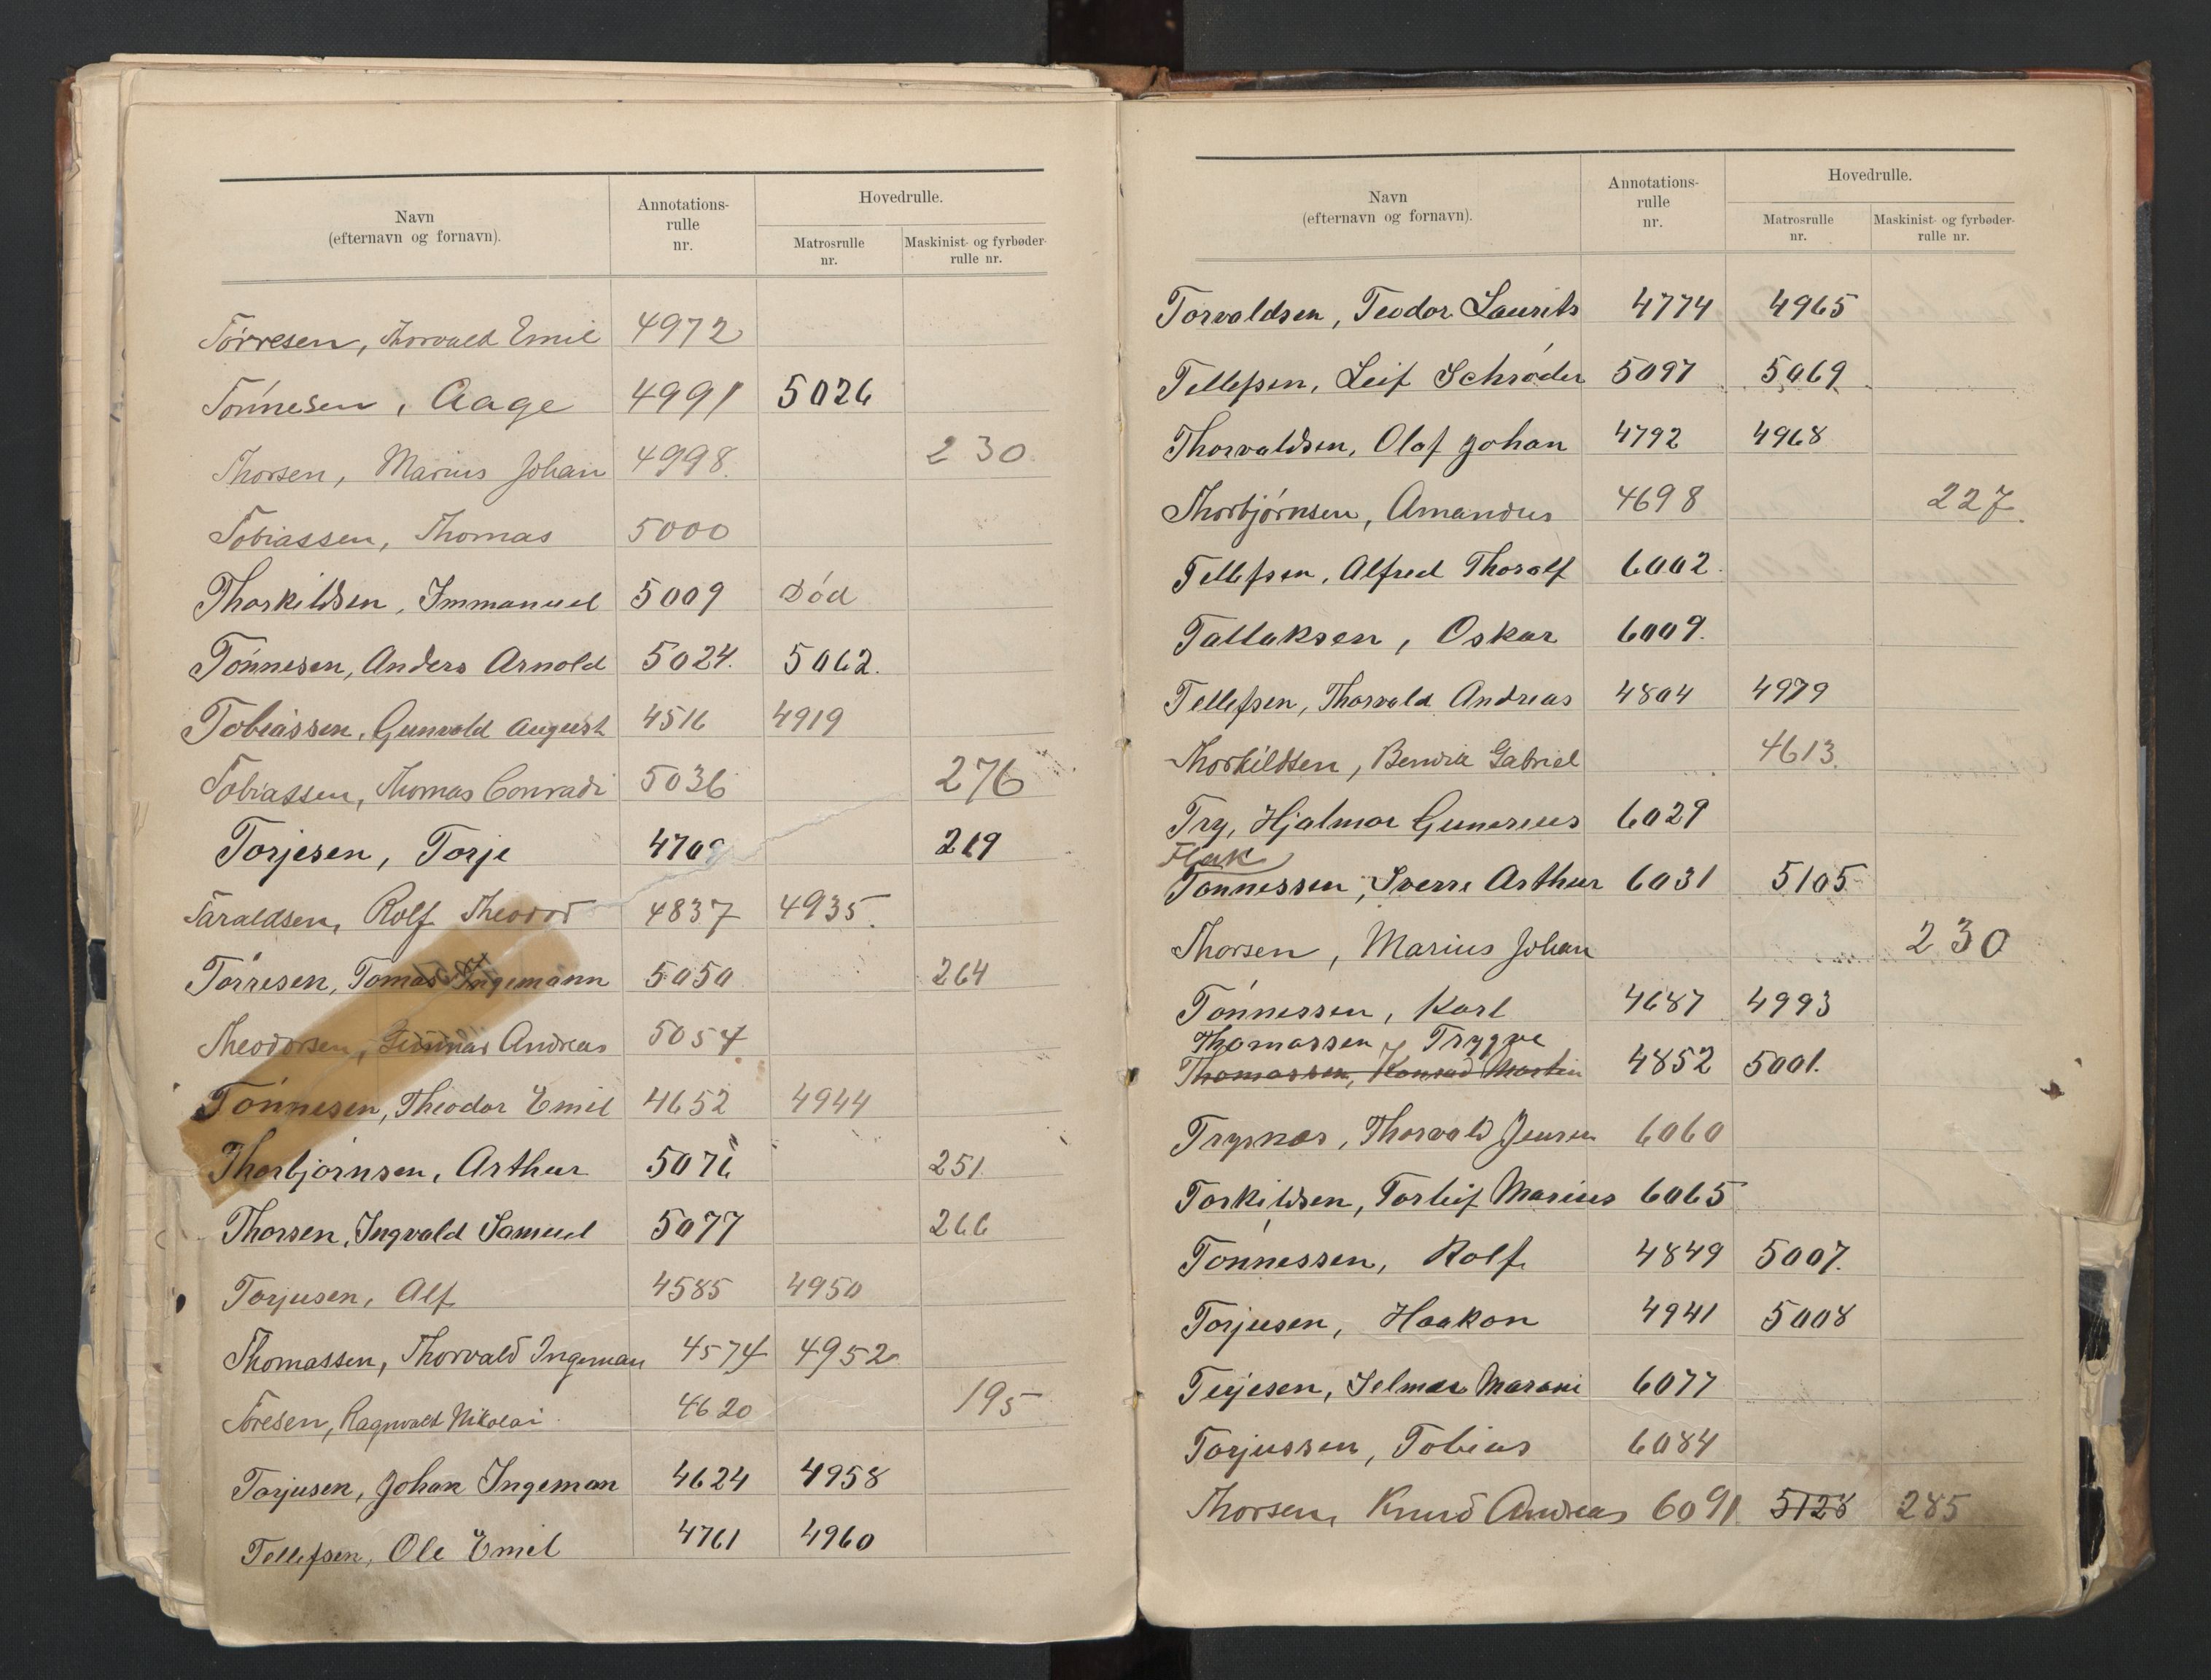 Navn
(efternavn og fornavn).
Annotations-
rulle
nr.
Hovedrulle.
Matrosrulle
nr.
Maskinist- og fyrbøder-
rulle nr.
Tørresen, Thorvald Emil 4972
Tønnesen, Aage 4991 5026
Thorsen, Marius Johan 4998. 230.
Tobiassen, Thomas 5000
Thorkildsen, Immanuel 5009 Død
Tønnesen, Anders Arnold 5024. 5062.
Tobiassen, Gunvald August 4516 4919
Tobiassen, Thomas Conradi 5036 276
Torjesen, Torje 4709 219
Taraldsen, Rolf Theodor 4837 4935.
Tørresen, Tomas Ingemann 5050 264
Theodorsen, Gunnar Andreas 5054
Tønnesen, Theodor Emil 4652 4944
Thorbjørnsen, Arthur 5076 251.
Thorsen, Ingvald Samuel 5077 266
Torjusen, Alf 4585 4950
Thomassen, Thorvald Ingeman 4574 4952
Toresen, Ragnvald Nikolai 4620 195
Torjusen, Johan Ingeman 4624 4958
Tellefsen, Ole Emil 4761 4960
Navn
(efternavn og fornavn).
Annotations-
rulle
nr.
Hovedrulle.
Matrosrulle
nr.
Maskinist- og fyrbøder-
rulle nr.
Torvaldsen, Teodor Laurits 4774 4965
Tellefsen, Leif Schrøder 5097 5069
Thorvaldsen, Olaf Johan 4792 4968
Thorbjørnsen, Amandus 4698 227.
Tellefsen, Alfred Thoralf 6002.
Tallaksen, Oskar 6009.
Tellefsen, Thorvald Andreas 4804 4979
Thorkildsen, Bendix Gabriel 4613.
Try, Hjalmar Gunerius 6029
Flak
Tønnessen, Sverre Arthur 6031 5105
Thorsen, Marius Johan 230
Tønnessen, Karl 4687 4993
Thomassen, Trygve
Thomassen, Konrad Martin 4852 5001.
Trysnes, Thorvald Jensen 6060
Torkildsen, Torleif Marius 6065
Tønnessen, Rolf 4849 5007.
Torjusen, Haakon 4941 5008
Terjesen, Selmer 6077
Torjussen, Tobias 6084
Thorsen, Knud Andreas 6091. 5128 285